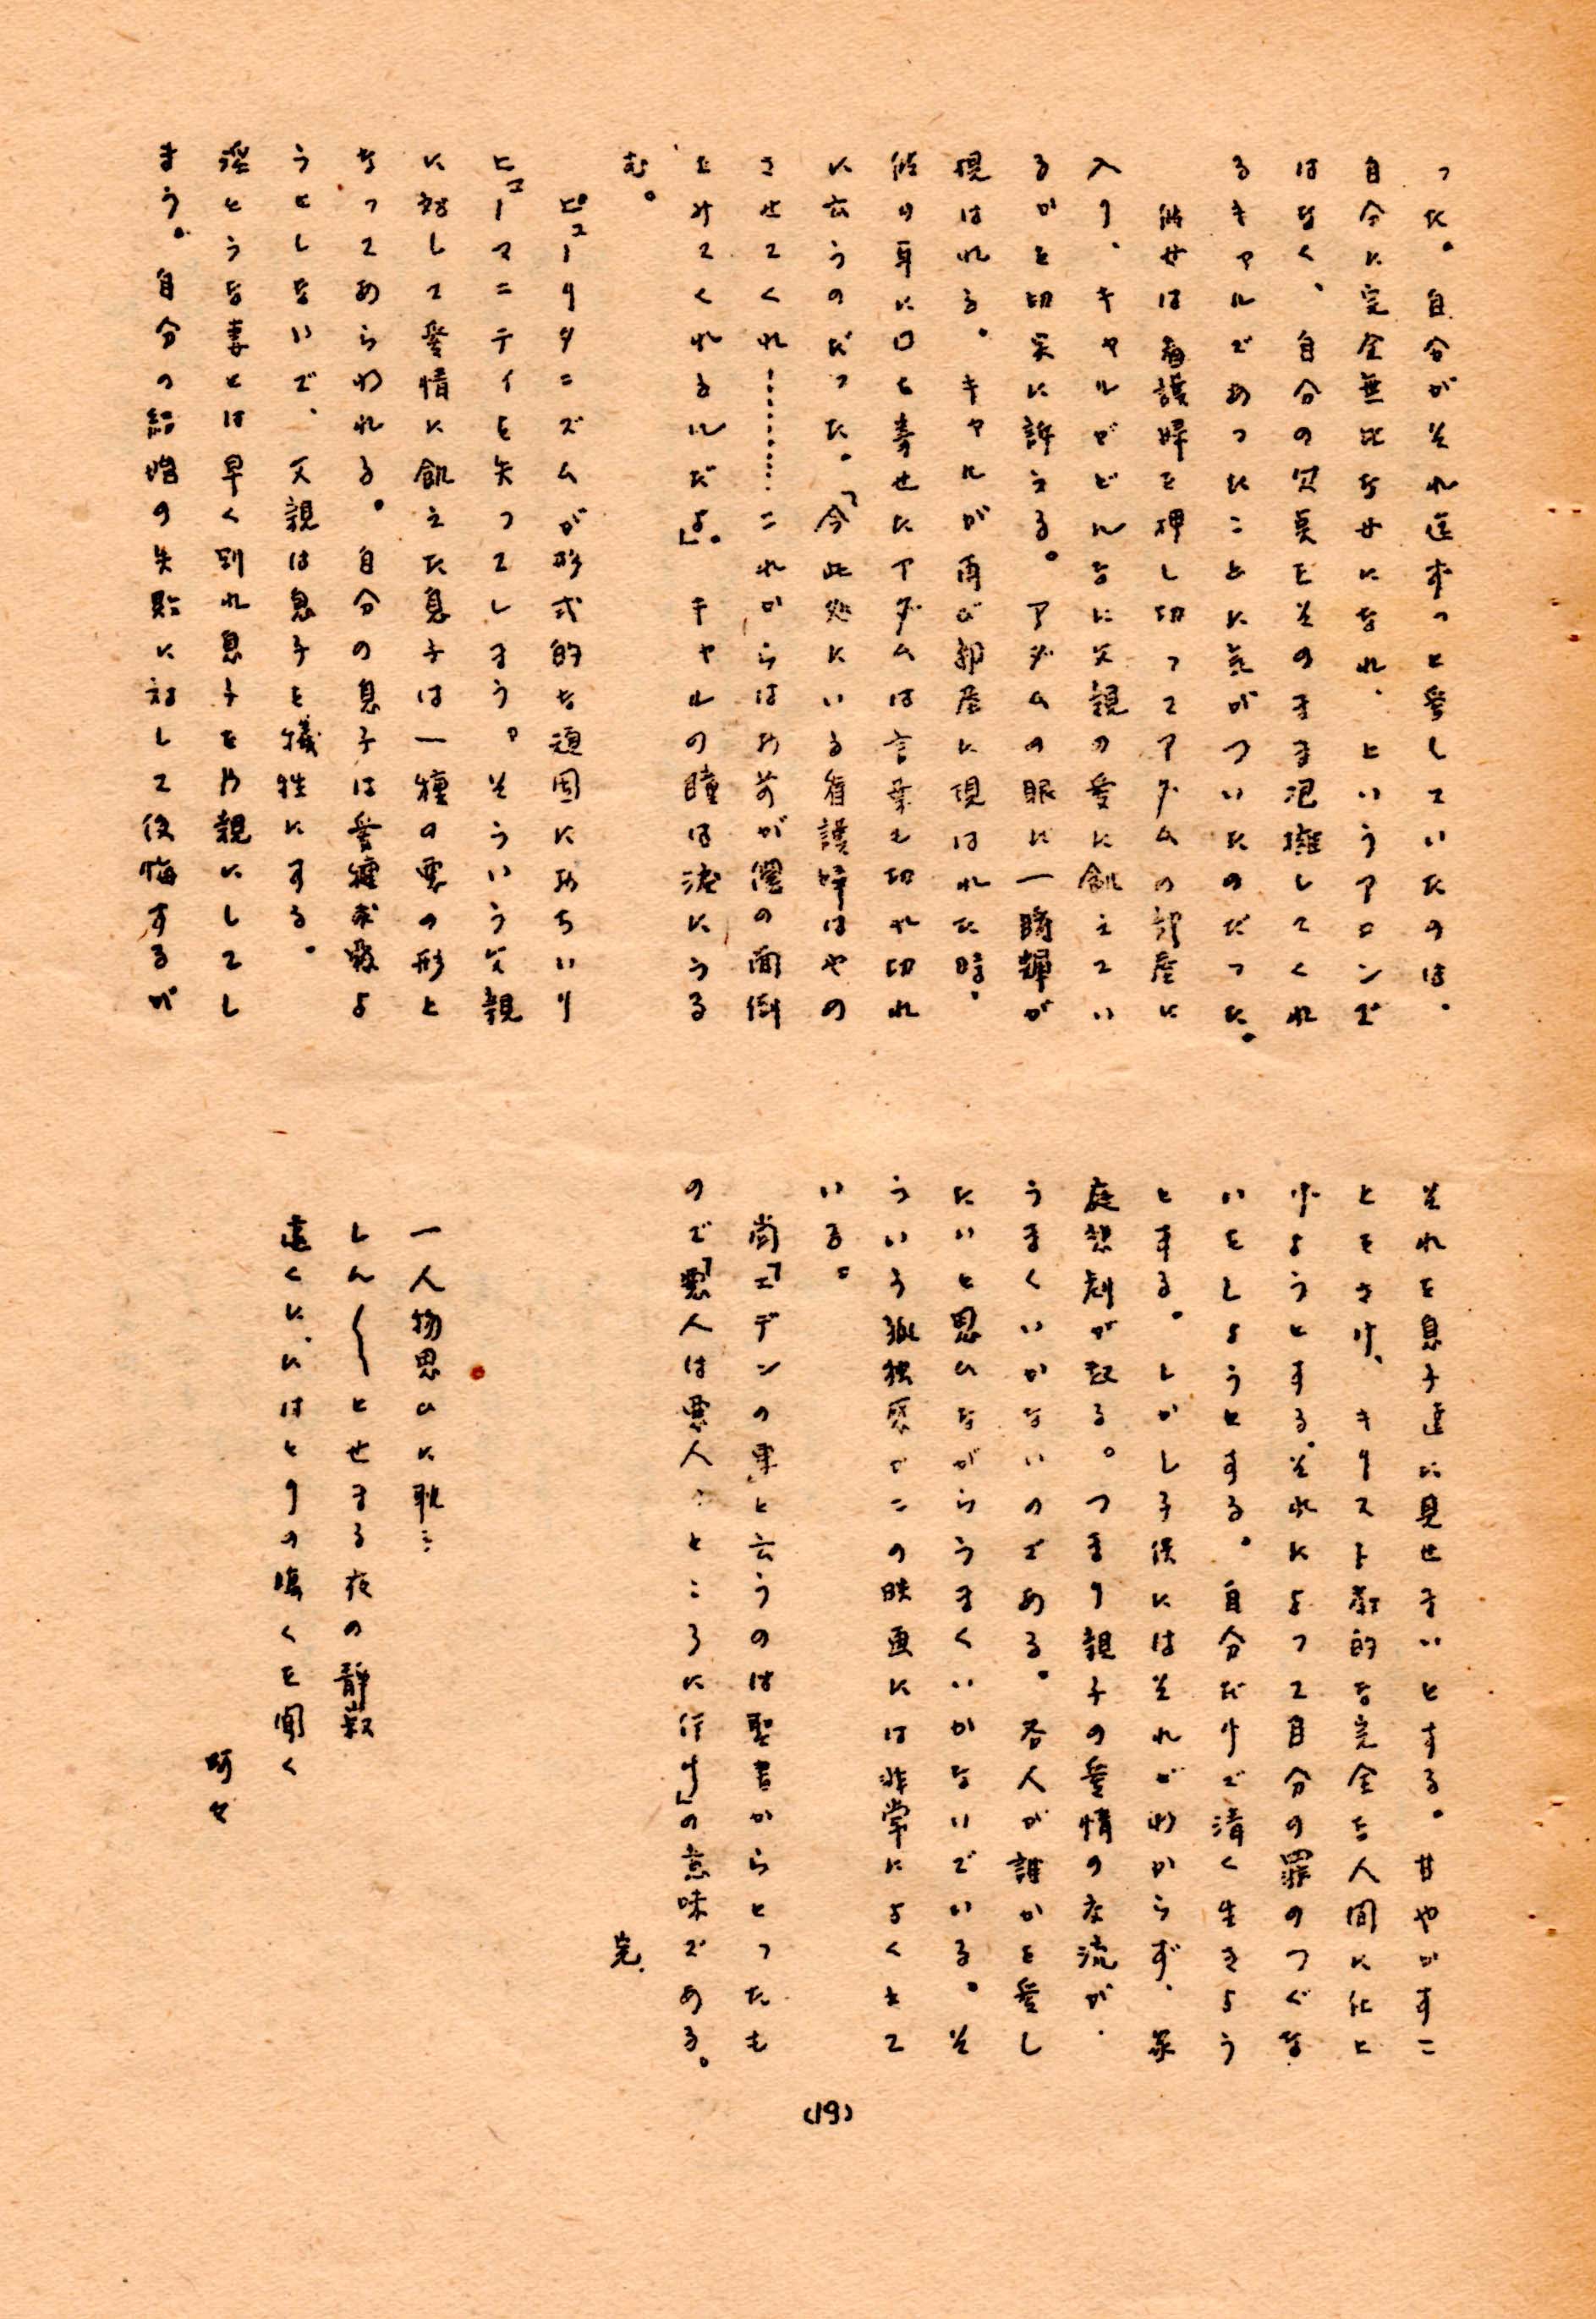 った。自分がそれ迄ずっと愛していたのは、
自分に完全無比なサになれ、というアロンで
はなく、自分の欠臭をそのまま泡擁してくれ
るキャルであったことに気がついたのだった。
彼女は看護婦を押し切ってアダムの部屋に
入り、キャルがどんなに父親の愛に飢えてい
るかを切実に訴える。アダムの眼に一瞬輝が
現はれる。キャルが再び部屋に現はれた時、
彼の耳に口を寄せたアダムは言葉も切れ切れ
に云うのだった。「今此処にいる看護婦はやの
させてくれ………これからはお前が僕の面倒
をみてくれるんだよ」。キャルの瞳は涙にうる
む。
ピューリタニズムが形式的な頑固におちいり
ヒューマニテイを失ってしまう。そういう父親
に対して愛情に飢えた息子は一種の悪の形と
なってあらわれる。自分の息子は愛を求めよ
うとしないで、父親は息子を犠牲にする。
淫とうな妻とは早く別れ息子を片親にしてし
まう。自分の結婚の失敗に対して後悔するが
それを息子達に見せまいとする。甘やかすこ
とをさけ、キリスト教的な完全な人間に仕上
げようとする。それによって自分の罪のつぐな
いをしようとする。自分だけで清く生きよう
とする。しかし子供にはそれがわからず、家
庭悲劇が起る。つまり親子の愛情の交流が、
うまくいかないのである。各人が誰かを愛し
たいと思ひながらうまくいかないでいる。そ
ういう孤独感がこの映画には非常によくとて
いる。
尚「エデンの東」と云うのは聖書からとったも
ので「悪人は悪人のところに行け」の意味である。
完.
一人物思ひに耽ミ
しん〱とせまる夜の静寂
遠くに、にはとりの鳴くを聞く
阿女
(19)